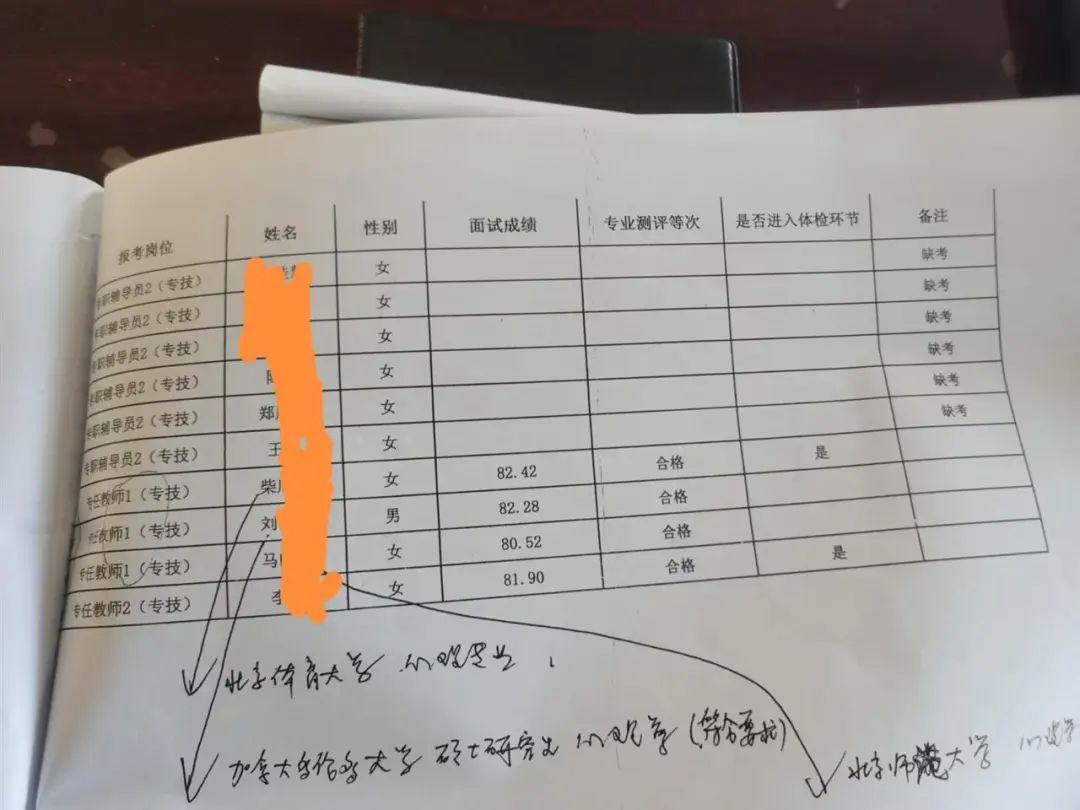 报考岗位 姓名 性别 面试成绩 专业测评等次 是否进入体检环节 备注
专职辅导员2（专技） 女 缺考
专职辅导员2（专技） 女 缺考
专职辅导员2（专技） 女 缺考
专职辅导员2（专技） 女 缺考
专职辅导员2（专技） 郑 女 缺考
专职辅导员2（专技） 王 女 缺考
专任教师1（专技） 柴 女 82.42 合格 是
任教师1（专技） 刘 男 82.28 合格
专任教师1（专技） 马 女 80.52 合格
专任教师2（专技） 李 女 81.90 合格 是
北京体育大学 心理
加拿大多伦多大学 硕士研究生 心理学（符合要求）
北京师范大学 心理学